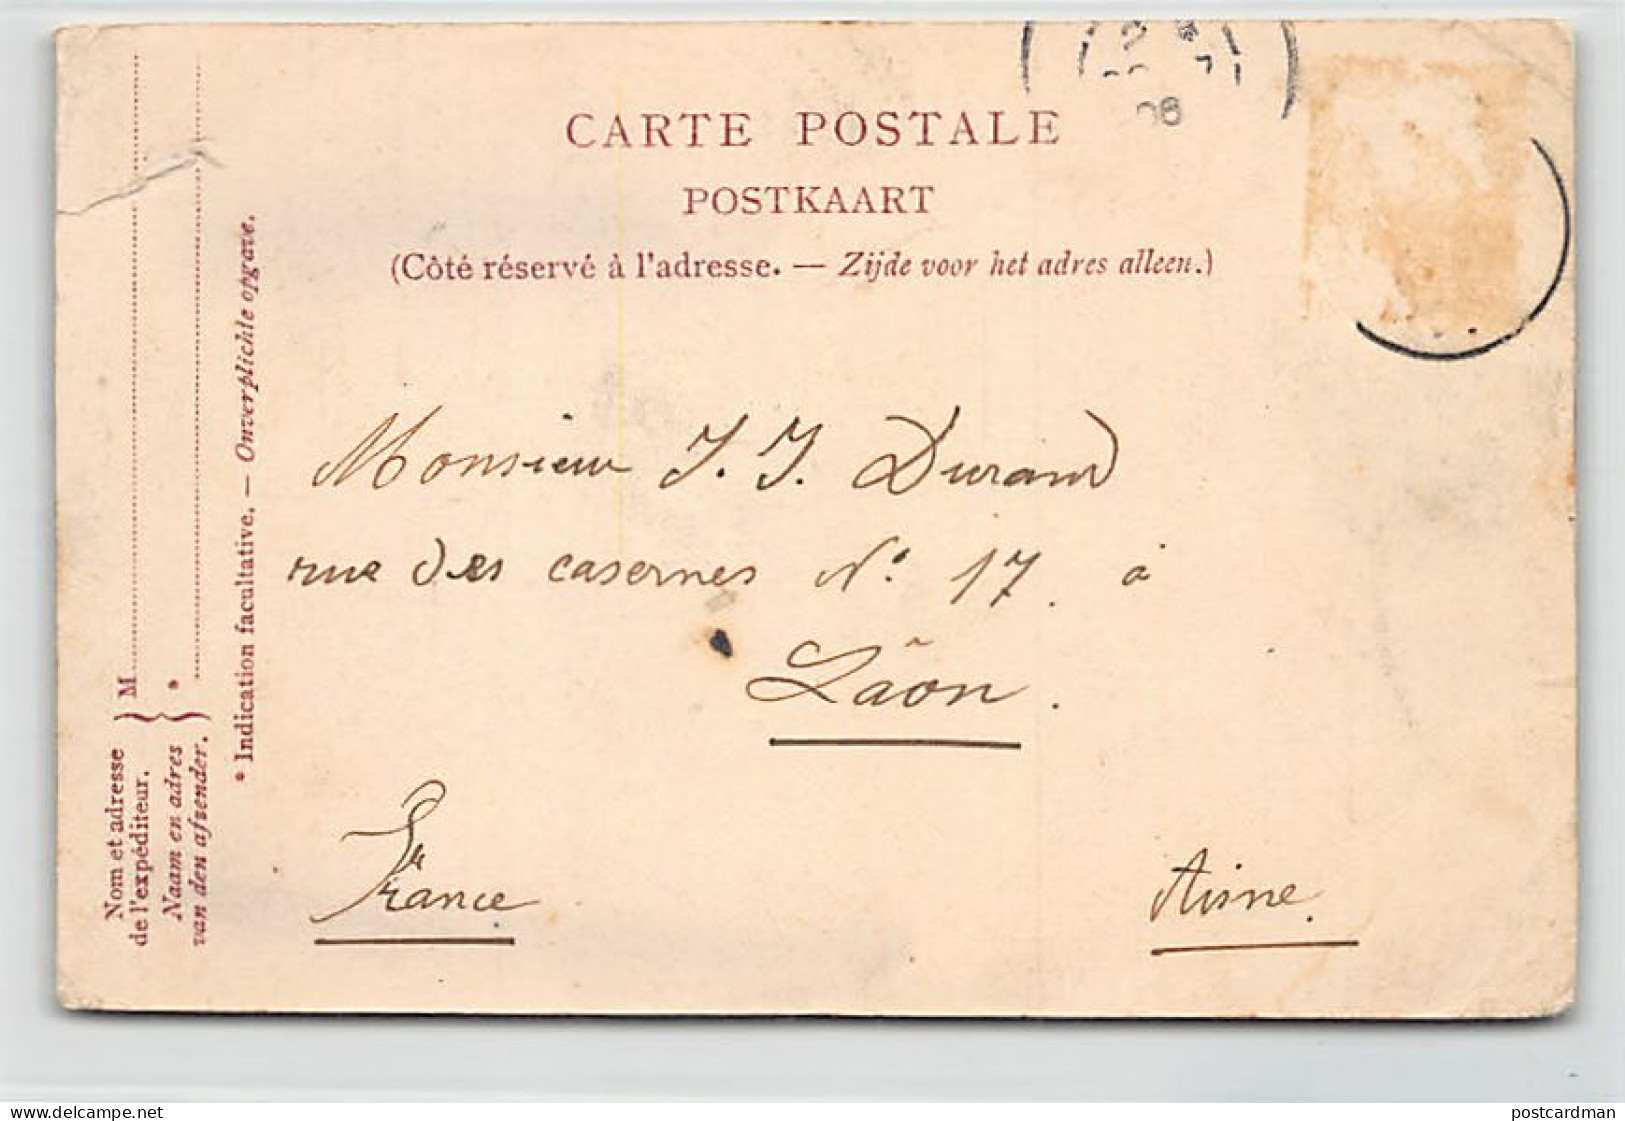 CARTE POSTALE
POSTKAART
(Côté réservé à l'adresse. — Zijde voor het adres alleen.)
Monsieur J. J. Durand
rue des casernes N° 17. à
Lâon.
France.
Aisne.
Nom et adresse
de l'expéditeur. } M
Naam en adres
van den afzender. } *
* Indication facultative. — Onverplichte opgave.
www.delcampe.net
postcardman